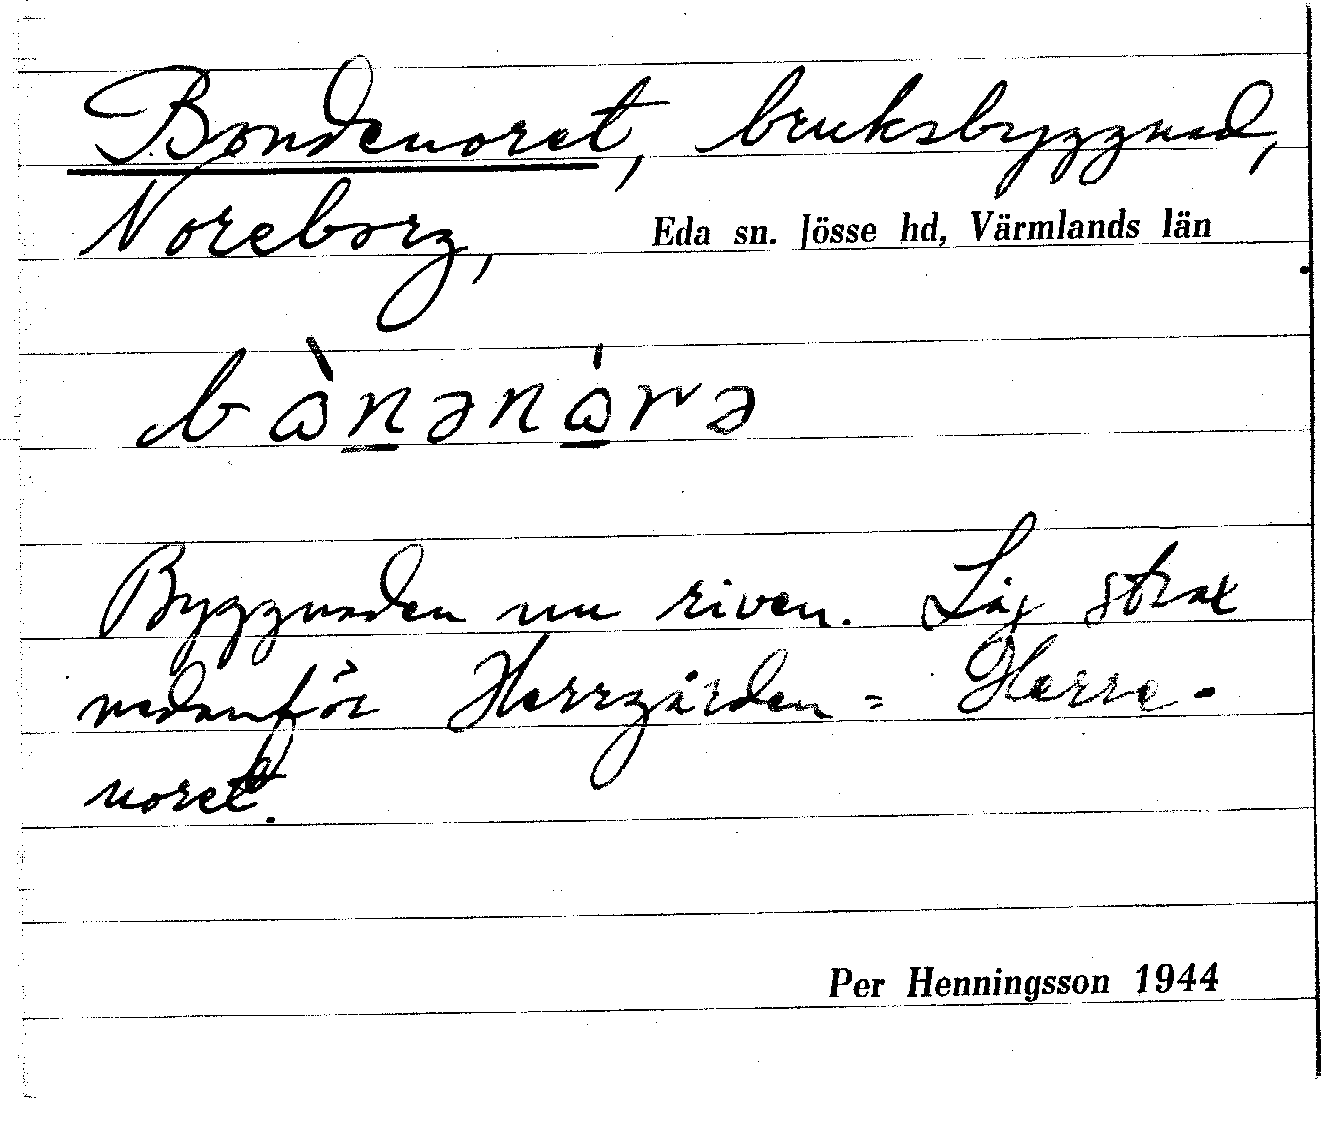 Bondenoret, bruksbyggnad,
Noreborg,
Eda sn. Jösse hd, Värmlands län
bònənórə
Byggnaden nu riven. Låg strax
nedanför Herrgården = Herre-
noret.
Per Henningsson 1944